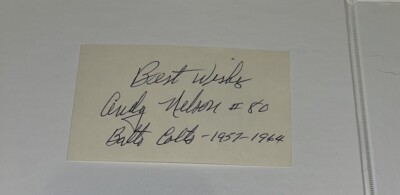 Best Wishes
Andy Nelson #80
Balto Colts - 1957-1964